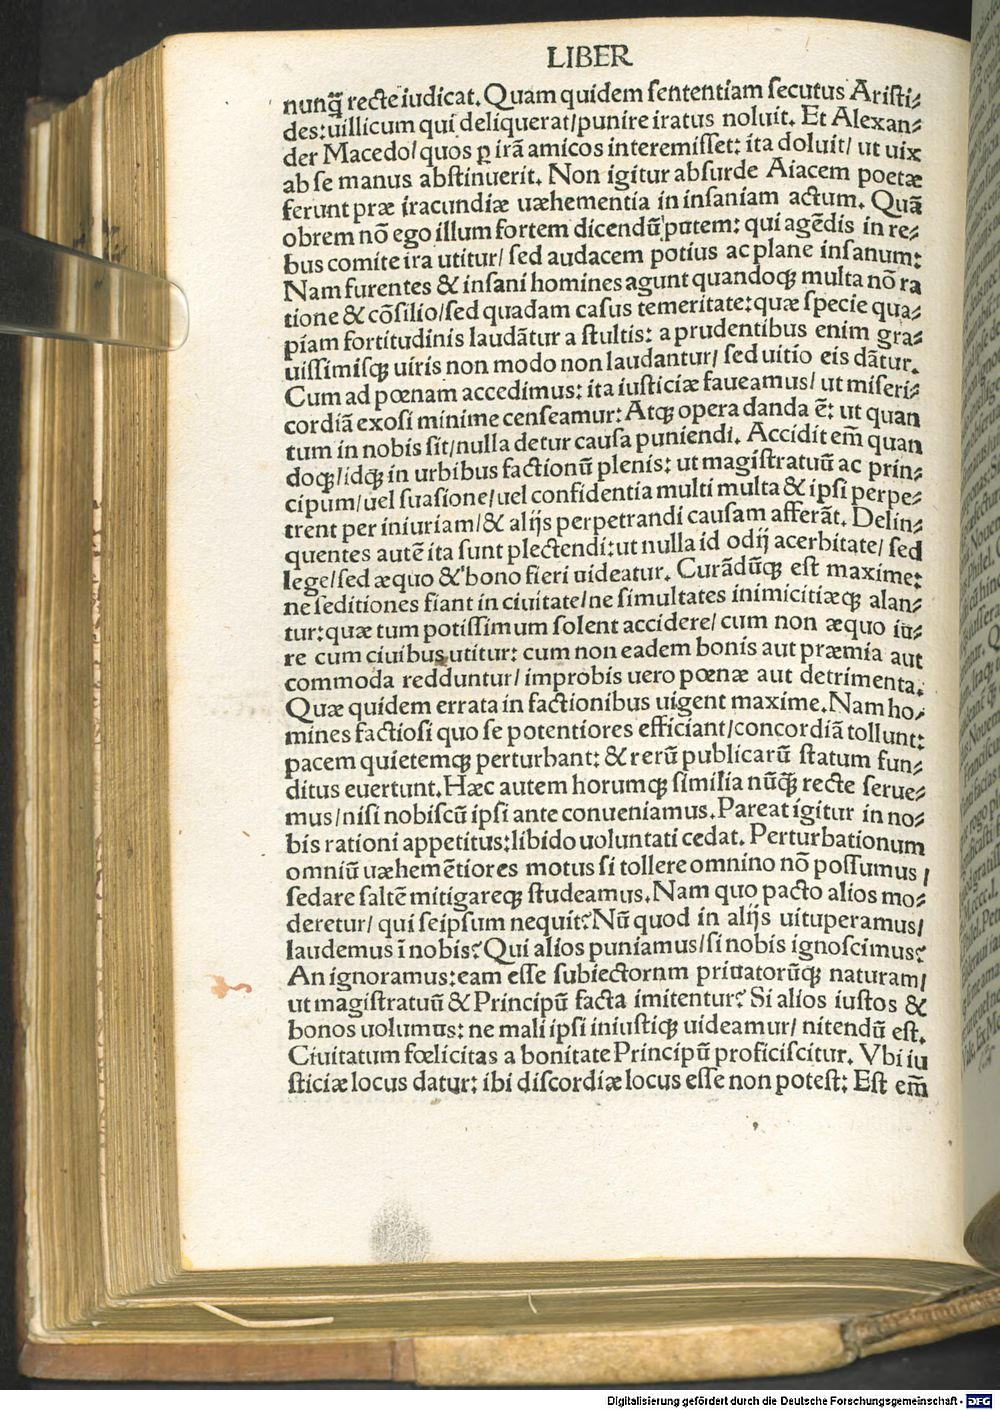 LIBER
nunq̃ recte iudicat. Quam quidem sententiam secutus Aristi⸗
des: uillicum qui deliquerat/punire iratus noluit. Et Alexan⸗
der Macedo/quos ꝑ irã amicos interemisset: ita doluit/ ut uix
ab se manus abstinuerit. Non igitur absurde Aiacem poetæ
ferunt præ iracundiæ uæhementia in insaniam actum. Quã
obrem nõ ego illum fortem dicendũ putem: qui agẽdis in re⸗
bus comite ira utitur/ sed audacem potius ac plane insanum:
Nam furentes & insani homines agunt quandoqꝫ multa nõ ra
tione & cõsilio/sed quadam casus temeritate: quæ specie qua⸗
piam fortitudinis laudãtur a stultis: a prudentibus enim gra⸗
uissimisqꝫ uiris non modo non laudantur/ sed uitio eis dãtur.
Cum ad pœnam accedimus: ita iusticiæ faueamus/ ut miseri⸗
cordiã exosi minime censeamur: Atqꝫ opera danda ẽ: ut quan
tum in nobis sit/nulla detur causa puniendi. Accidit em̃ quan
doqꝫ/idqꝫ in urbibus factionũ plenis: ut magistratuũ ac prin⸗
cipum/uel suasione/uel confidentia multi multa & ipsi perpe⸗
trent per iniuriam/& alijs perpetrandi causam afferãt. Delin⸗
quentes autẽ ita sunt plectendi: ut nulla id odij acerbitate/ sed
lege/sed æquo & bono fieri uideatur. Curãdũqꝫ est maxime:
ne seditiones fiant in ciuitate/ne simultates inimicitiæqꝫ alan⸗
tur: quæ tum potissimum solent accidere/ cum non æquo iu⸗
re cum ciuibus utitur: cum non eadem bonis aut præmia aut
commoda redduntur/ improbis uero pœnæ aut detrimenta.
Quæ quidem errata in factionibus uigent maxime. Nam ho⸗
mines factiosi quo se potentiores efficiant/concordiã tollunt:
pacem quietemqꝫ perturbant: & rerũ publicarũ statum fun⸗
ditus euertunt. Hæc autem horumqꝫ similia nũq̃ recte serue⸗
mus/nisi nobiscũ ipsi ante conueniamus. Pareat igitur in no⸗
bis rationi appetitus: libido uoluntati cedat. Perturbationum
omniũ uæhemẽtiores motus si tollere omnino nõ possumus /
sedare saltẽ mitigareqꝫ studeamus. Nam quo pacto alios mo⸗
deretur/ qui seipsum nequit? Nũ quod in alijs uituperamus/
laudemus ĩ nobis? Qui alios puniamus/si nobis ignoscimus?
An ignoramus: eam esse subiectorum priuatorũqꝫ naturam/
ut magistratuũ & Principũ facta imitentur? Si alios iustos &
bonos uolumus: ne mali ipsi iniustiqꝫ uideamur/ nitendũ est.
Ciuitatum fœlicitas a bonitate Principũ proficiscitur. Vbi iu
sticiæ locus datur: ibi discordiæ locus esse non potest: Est em̃
Digitalisierung gefördert durch die Deutsche Forschungsgemeinschaft - DFG